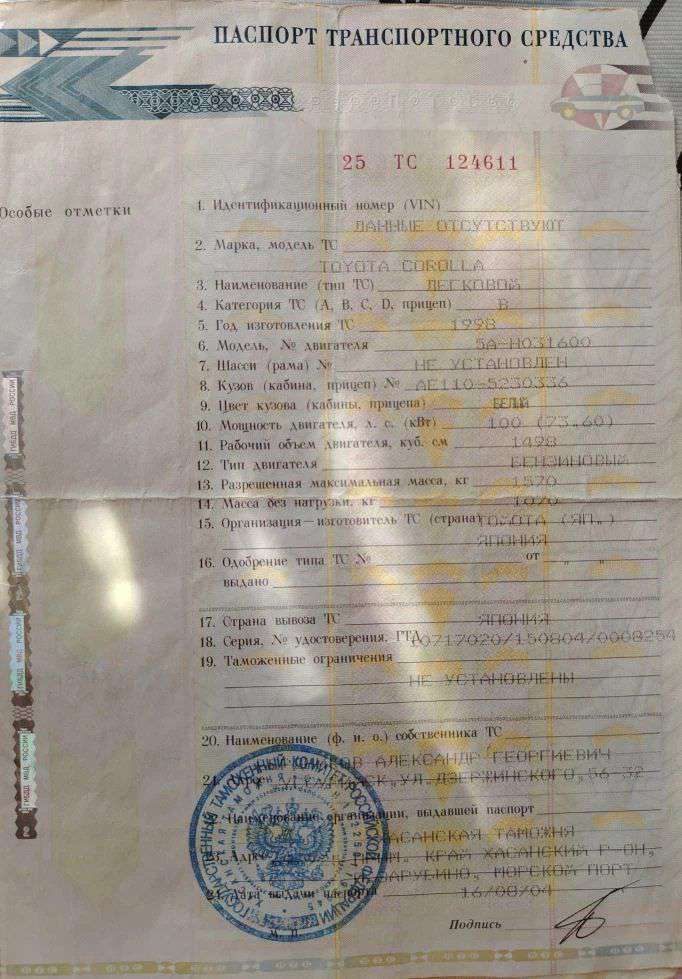 ПАСПОРТ ТРАНСПОРТНОГО СРЕДСТВА
25 ТС 124611
Особые отметки
1. Идентификационный номер (VIN)
ДАННЫЕ ОТСУТСТВУЮТ
2. Марка, модель ТС
TOYOTA COROLLA
3. Наименование (тип ТС) ЛЕГКОВОЙ
4. Категория ТС (A, B, C, D, прицеп) B
5. Год изготовления ТС 1998
6. Модель, № двигателя 5A-H031600
7. Шасси (рама) № НЕ УСТАНОВЛЕН
8. Кузов (кабина, прицеп) № AE110-5230336
9. Цвет кузова (кабины, прицепа) БЕЛЫЙ
10. Мощность двигателя, л. с. (кВт) 100 (73.60)
11. Рабочий объем двигателя, куб. см 1498
12. Тип двигателя БЕНЗИНОВЫЙ
13. Разрешенная максимальная масса, кг 1570
14. Масса без нагрузки, кг
15. Организация—изготовитель ТС (страна) ТОYОТА (ЯП.)
ЯПОНИЯ
16. Одобрение типа ТС № от „ „
выдано
17. Страна вывоза ТС ЯПОНИЯ
18. Серия, № удостоверения, ГТД 10717020/150804/0008254
19. Таможенные ограничения
НЕ УСТАНОВЛЕНЫ
20. Наименование (ф. и. о.) собственника ТС
АЛЕКСАНДР ГЕОРГИЕВИЧ
21. УЛ.ДЗЕРЖИНСКОГО,56-32
Наименование организации, выдавшей паспорт
ХАСАНСКАЯ ТАМОЖНЯ
23. Адрес КРАЙ ХАСАНСКИЙ Р-ОН,
ЗАРУБИНО, МОРСКОЙ ПОРТ
24. Дата выдачи паспорта 16/08/04
М. П. Подпись
ГОСУДАРСТВЕННЫЙ ТАМОЖЕННЫЙ КОМИТЕТ РОССИЙСКОЙ ФЕДЕРАЦИИ
ГИБДД МВД РОССИИ
ГИБДД МВД РОССИИ
ГИБДД МВД РОССИИ
ГИБДД МВД РОССИИ